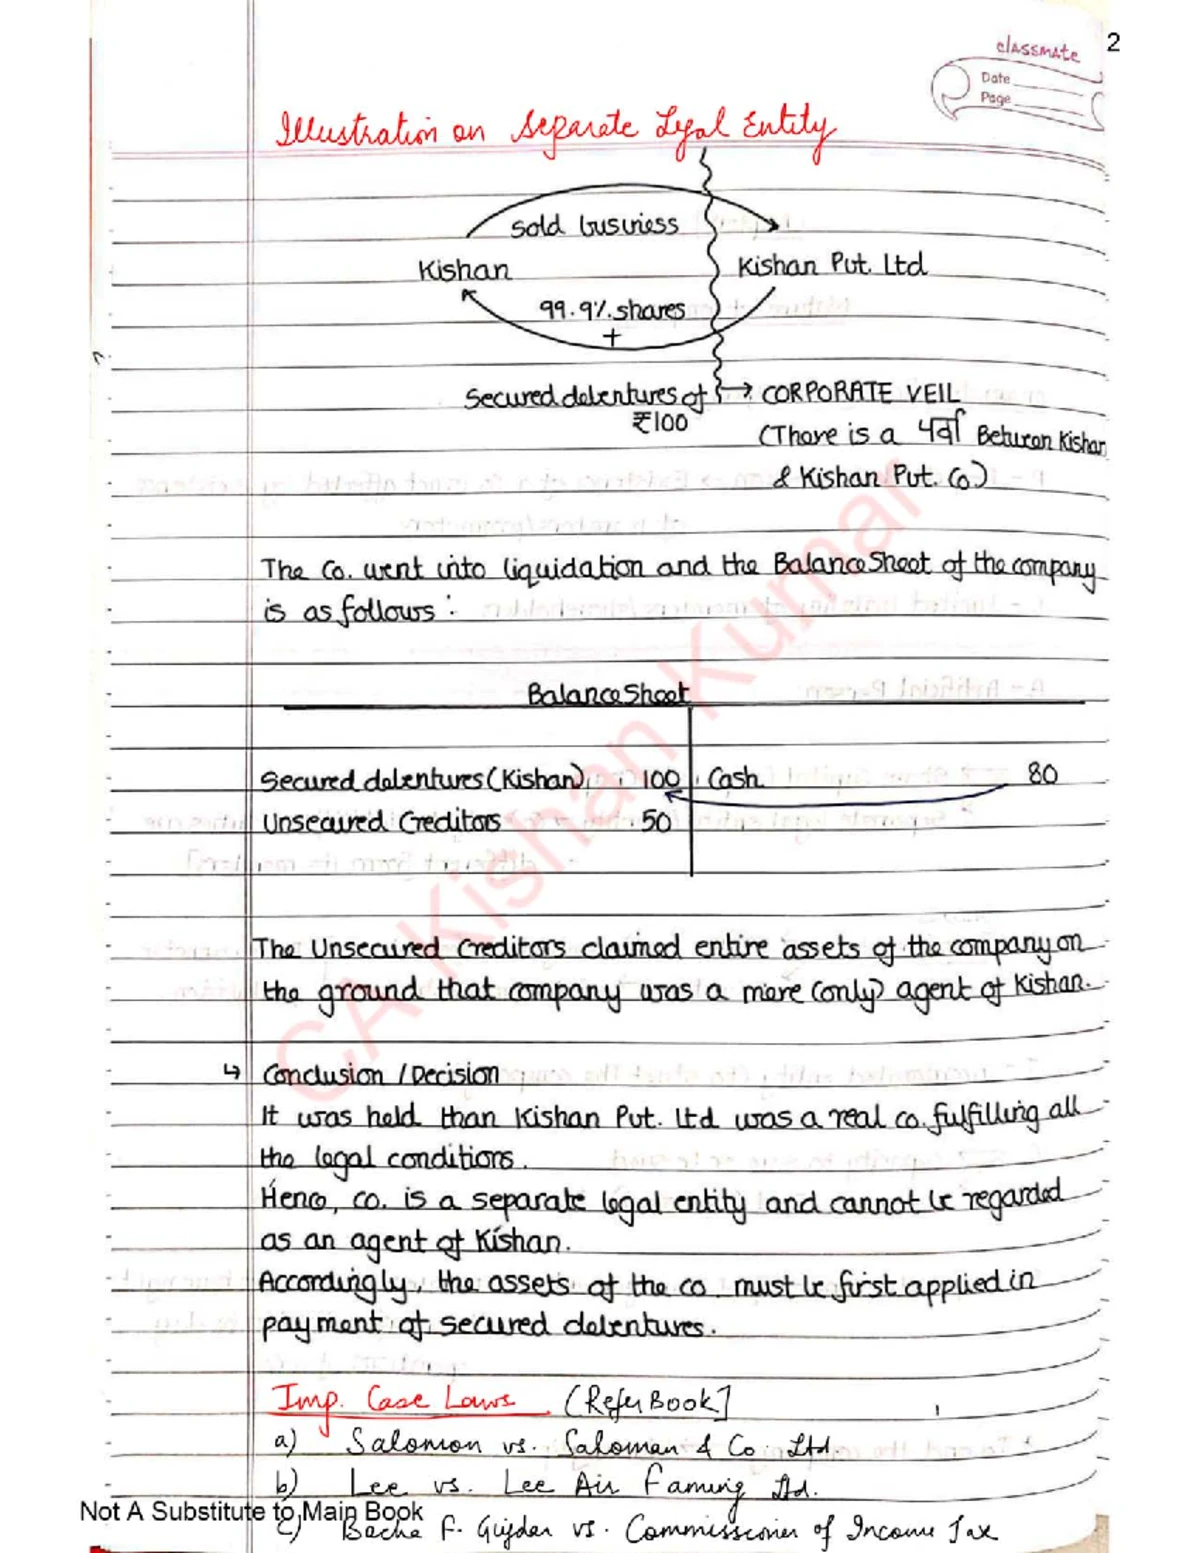 2
classmate
Date
Page
Illustration on Separate Legal Entity
sold business
Kishan Kishan Pvt. Ltd
99.9% shares
+
Secured debentures of → CORPORATE VEIL
₹100
(There is a पर्दा Between Kishan
& Kishan Pvt. Co)
The Co. went into liquidation and the Balance Sheet of the company
is as follows:
Balance Sheet
Secured debentures (Kishan) 100 Cash 80
Unsecured Creditors 50
The Unsecured Creditors claimed entire assets of the company on
the ground that company was a mere (only) agent of Kishan.
↳ Conclusion / Decision
It was held than Kishan Pvt. Ltd was a real co. fulfilling all
the legal conditions.
Hence, co. is a separate legal entity and cannot be regarded
as an agent of Kishan.
Accordingly, the assets of the co. must be first applied in
payment of secured debentures.
Imp. Case Laws (Refer Book]
a) Salomon vs. Saloman & Co. Ltd.
b) Lee vs. Lee Air Faming Ltd.
Not A Substitute to Main Book
c) Bacha F. Gujdar vs. Commissioner of Income Tax
CA Kishan Kumar